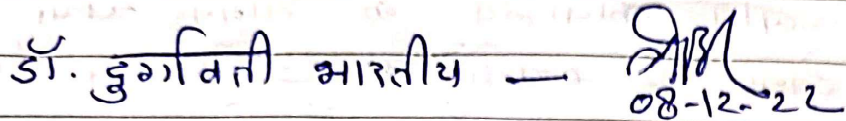 डॉ. दुर्गावती भारतीय —
08-12-22